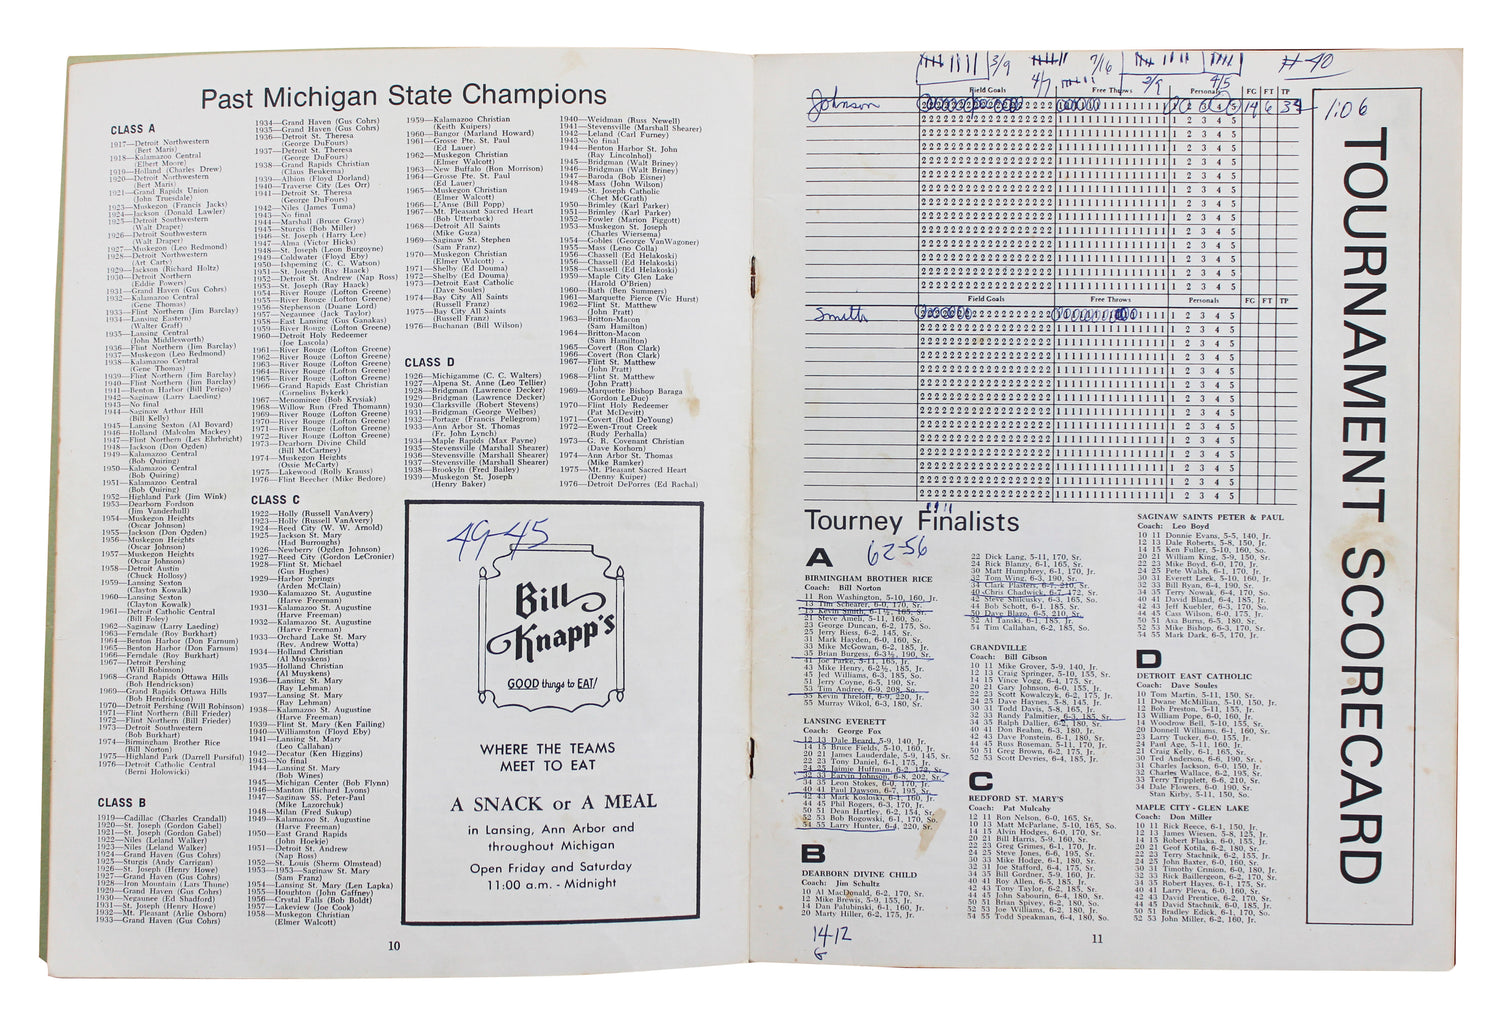 Past Michigan State Champions
CLASS A
1917—Detroit Northwestern
(Bert Maris)
1918—Kalamazoo Central
(Elbert Moore)
1919—Holland (Charles Drew)
1920—Detroit Northwestern
(Bert Maris)
1921—Grand Rapids Union
(John Truesdale)
1923—Muskegon (Francis Jacks)
1924—Jackson (Donald Lawler)
1925—Detroit Southwestern
(Walt Draper)
1926—Detroit Southwestern
(Walt Draper)
1927—Muskegon (Leo Redmond)
1928—Detroit Northwestern
(Art Carty)
1929—Jackson (Richard Holtz)
1930—Detroit Northern
(Eddie Powers)
1931—Grand Haven (Gus Cohrs)
1932—Kalamazoo Central
(Gene Thomas)
1933—Flint Northern (Jim Barclay)
1934—Lansing Eastern
(Walter Graff)
1935—Lansing Central
(John Middlesworth)
1936—Flint Northern (Jim Barclay)
1937—Muskegon (Leo Redmond)
1938—Kalamazoo Central
(Gene Thomas)
1939—Flint Northern (Jim Barclay)
1940—Flint Northern (Jim Barclay)
1941—Benton Harbor (Bill Perigo)
1942—Saginaw (Larry Laeding)
1943—No final
1944—Saginaw Arthur Hill
(Bill Kelly)
1945—Lansing Sexton (Al Bovard)
1946—Holland (Malcolm Mackey)
1947—Flint Northern (Les Ehrbright)
1948—Jackson (Don Ogden)
1949—Kalamazoo Central
(Bob Quiring)
1950—Kalamazoo Central
(Bob Quiring)
1951—Kalamazoo Central
(Bob Quiring)
1952—Highland Park (Jim Wink)
1953—Dearborn Fordson
(Jim Vanderhull)
1954—Muskegon Heights
(Oscar Johnson)
1955—Jackson (Don Ogden)
1956—Muskegon Heights
(Oscar Johnson)
1957—Muskegon Heights
(Oscar Johnson)
1958—Detroit Austin
(Chuck Hollosy)
1959—Lansing Sexton
(Clayton Kowalk)
1960—Lansing Sexton
(Clayton Kowalk)
1961—Detroit Catholic Central
(Bill Foley)
1962—Saginaw (Larry Laeding)
1963—Ferndale (Roy Burkhart)
1964—Benton Harbor (Don Farnum)
1965—Benton Harbor (Don Farnum)
1966—Ferndale (Roy Burkhart)
1967—Detroit Pershing
(Will Robinson)
1968—Grand Rapids Ottawa Hills
(Bob Hendrickson)
1969—Grand Rapids Ottawa Hills
(Bob Hendrickson)
1970—Detroit Pershing (Will Robinson)
1971—Flint Northern (Bill Frieder)
1972—Flint Northern (Bill Frieder)
1973—Detroit Southwestern
(Bob Burkhart)
1974—Birmingham Brother Rice
(Bill Norton)
1975—Highland Park (Darrell Pursiful)
1976—Detroit Catholic Central
(Berni Holowicki)
CLASS B
1919—Cadillac (Charles Crandall)
1920—St. Joseph (Gordon Gabel)
1921—St. Joseph (Gordon Gabel)
1922—Niles (Leland Walker)
1923—Niles (Leland Walker)
1924—Grand Haven (Gus Cohrs)
1925—Sturgis (Andy Carrigan)
1926—St. Joseph (Henry Howe)
1927—Grand Haven (Gus Cohrs)
1928—Iron Mountain (Lars Thune)
1929—Grand Haven (Gus Cohrs)
1930—Negaunee (Ed Shadford)
1931—St. Joseph (Henry Howe)
1932—Mt. Pleasant (Arlie Osborn)
1933—Grand Haven (Gus Cohrs)
1934—Grand Haven (Gus Cohrs)
1935—Grand Haven (Gus Cohrs)
1936—Detroit St. Theresa
(George DuFours)
1937—Detroit St. Theresa
(George DuFours)
1938—Grand Rapids Christian
(Claus Beukema)
1939—Albion (Floyd Dorland)
1940—Traverse City (Les Orr)
1941—Detroit St. Theresa
(George DuFours)
1942—Niles (James Tuma)
1943—No final
1944—Marshall (Bruce Gray)
1945—Sturgis (Bob Miller)
1946—St. Joseph (Harry Lee)
1947—Alma (Victor Hicks)
1948—St. Joseph (Leon Burgoyne)
1949—Coldwater (Floyd Eby)
1950—Ishpeming (C. C. Watson)
1951—St. Joseph (Ray Haack)
1952—Detroit St. Andrew (Nap Ross)
1953—St. Joseph (Ray Haack)
1954—River Rouge (Lofton Greene)
1955—River Rouge (Lofton Greene)
1956—Stephenson (Duane Lord)
1957—Negaunee (Jack Taylor)
1958—East Lansing (Gus Ganakas)
1959—River Rouge (Lofton Greene)
1960—Detroit Holy Redeemer
(Joe Lascola)
1961—River Rouge (Lofton Greene)
1962—River Rouge (Lofton Greene)
1963—River Rouge (Lofton Greene)
1964—River Rouge (Lofton Greene)
1965—River Rouge (Lofton Greene)
1966—Grand Rapids East Christian
(Cornelius Bykerk)
1967—Menominee (Bob Krysiak)
1968—Willow Run (Fred Thomann)
1969—River Rouge (Lofton Greene)
1970—River Rouge (Lofton Greene)
1971—River Rouge (Lofton Greene)
1972—River Rouge (Lofton Greene)
1973—Dearborn Divine Child
(Bill McCartney)
1974—Muskegon Heights
(Ossie McCarty)
1975—Lakewood (Rolly Krauss)
1976—Flint Beecher (Mike Bedore)
CLASS C
1922—Holly (Russell VanAvery)
1923—Holly (Russell VanAvery)
1924—Reed City (W. W. Arnold)
1925—Jackson St. Mary
(Had Burroughs)
1926—Newberry (Ogden Johnson)
1927—Reed City (Gordon LeCronier)
1928—Flint St. Michael
(Gus Hughes)
1929—Harbor Springs
(Arden McClain)
1930—Kalamazoo St. Augustine
(Harve Freeman)
1931—Kalamazoo St. Augustine
(Harve Freeman)
1932—Kalamazoo St. Augustine
(Harve Freeman)
1933—Orchard Lake St. Mary
(Rev. Andrew Wotta)
1934—Holland Christian
(Al Muyskens)
1935—Holland Christian
(Al Muyskens)
1936—Lansing St. Mary
(Ray Lehman)
1937—Lansing St. Mary
(Ray Lehman)
1938—Kalamazoo St. Augustine
(Harve Freeman)
1939—Flint St. Mary (Ken Failing)
1940—Williamston (Floyd Eby)
1941—Lansing St. Mary
(Leo Callahan)
1942—Decatur (Ken Higgins)
1943—No final
1944—Lansing St. Mary
(Bob Wines)
1945—Michigan Center (Bob Flynn)
1946—Manton (Richard Lyons)
1947—Saginaw SS. Peter-Paul
(Mike Lazorchuk)
1948—Milan (Fred Sukup)
1949—Kalamazoo St. Augustine
(Harve Freeman)
1950—East Grand Rapids
(John Hoekje)
1951—Detroit St. Andrew
(Nap Ross)
1952—St. Louis (Sherm Olmstead)
1953—1953—Saginaw St. Mary
(Sam Franz)
1954—Lansing St. Mary (Len Lapka)
1955—Houghton (John Gaffney)
1956—Crystal Falls (Bob Boldt)
1957—Lakeview (Joe Cook)
1958—Muskegon Christian
(Elmer Walcott)
1959—Kalamazoo Christian
(Keith Kuipers)
1960—Bangor (Marland Howard)
1961—Grosse Pte. St. Paul
(Ed Lauer)
1962—Muskegon Christian
(Elmer Walcott)
1963—New Buffalo (Ron Morrison)
1964—Grosse Pte. St. Paul
(Ed Lauer)
1965—Muskegon Christian
(Elmer Walcott)
1966—L'Anse (Bill Popp)
1967—Mt. Pleasant Sacred Heart
(Bob Utterback)
1968—Detroit All Saints
(Mike Guza)
1969—Saginaw St. Stephen
(Sam Franz)
1970—Muskegon Christian
(Elmer Walcott)
1971—Shelby (Ed Douma)
1972—Shelby (Ed Douma)
1973—Detroit East Catholic
(Dave Soules)
1974—Bay City All Saints
(Russell Franz)
1975—Bay City All Saints
(Russell Franz)
1976—Buchanan (Bill Wilson)
CLASS D
1926—Michigamme (C. C. Walters)
1927—Alpena St. Anne (Leo Tellier)
1928—Bridgman (Lawrence Decker)
1929—Bridgman (Lawrence Decker)
1930—Clarksville (Robert Stevens)
1931—Bridgman (George Welbes)
1932—Portage (Francis Pellegrom)
1933—Ann Arbor St. Thomas
(Fr. John Lynch)
1934—Maple Rapids (Max Payne)
1935—Stevensville (Marshall Shearer)
1936—Stevensville (Marshall Shearer)
1937—Stevensville (Marshall Shearer)
1938—Brooklyn (Fred Bailey)
1939—Muskegon St. Joseph
(Henry Baker)
1940—Weidman (Russ Newell)
1941—Stevensville (Marshall Shearer)
1942—Leland (Carl Furney)
1943—No final
1944—Benton Harbor St. John
(Ray Lincolnhol)
1945—Bridgman (Walt Briney)
1946—Bridgman (Walt Briney)
1947—Baroda (Bob Eisner)
1948—Mass (John Wilson)
1949—St. Joseph Catholic
(Chet McGrath)
1950—Brimley (Karl Parker)
1951—Brimley (Karl Parker)
1952—Fowler (Marion Piggott)
1953—Muskegon St. Joseph
(Charles Wiersema)
1954—Gobles (George VanWagoner)
1955—Mass (Leno Colla)
1956—Chassell (Ed Helakoski)
1957—Chassell (Ed Helakoski)
1958—Chassell (Ed Helakoski)
1959—Maple City Glen Lake
(Harold O'Brien)
1960—Bath (Ben Summers)
1961—Marquette Pierce (Vic Hurst)
1962—Flint St. Matthew
(John Pratt)
1963—Britton-Macon
(Sam Hamilton)
1964—Britton-Macon
(Sam Hamilton)
1965—Covert (Ron Clark)
1966—Covert (Ron Clark)
1967—Flint St. Matthew
(John Pratt)
1968—Flint St. Matthew
(John Pratt)
1969—Marquette Bishop Baraga
(Gordon LeDuc)
1970—Flint Holy Redeemer
(Pat McDevitt)
1971—Covert (Rod DeYoung)
1972—Ewen-Trout Creek
(Rudy Perhalla)
1973—G. R. Covenant Christian
(Dave Korhorn)
1974—Ann Arbor St. Thomas
(Mike Ramker)
1975—Mt. Pleasant Sacred Heart
(Denny Kuiper)
1976—Detroit DePorres (Ed Rachal)
49-45
Bill
Knapp's
GOOD things to EAT!
WHERE THE TEAMS
MEET TO EAT
A SNACK or A MEAL
in Lansing, Ann Arbor and
throughout Michigan
Open Friday and Saturday
11:00 a.m. - Midnight
10
3/9 7/16 #40
4/7 3/9 4/5
Field Goals Free Throws Personals FG FT TP
Johnson 14 6 34 1:06
Field Goals Free Throws Personals FG FT TP
Smith
TOURNAMENT SCORECARD
Tourney Finalists
A
62-56
BIRMINGHAM BROTHER RICE
Coach: Bill Norton
11 Ron Washington, 5-10, 160, Jr.
13 Tim Schearer, 6-0, 170, Sr.
15 Kevin Smith, 6-1½, 165, Sr.
21 Steve Ameli, 5-11, 160, So.
23 George Duncan, 6-2, 175, So.
25 Jerry Riess, 6-2, 145, Sr.
31 Mark Hayden, 6-0, 160, Sr.
33 Mike McGowan, 6-2, 185, Jr.
35 Brian Burgess, 6-3½, 190, Sr.
41 Joe Parke, 5-11, 165, Jr.
43 Mike Henry, 6-2½, 185, Jr.
45 Jed Williams, 6-3, 185, So.
51 Jerry Coyne, 6-5, 190, Sr.
53 Tim Andree, 6-9, 208, So.
55 Kevin Threloff, 6-9, 220, Jr.
55 Murray Wikol, 6-3, 180, Sr.
LANSING EVERETT
Coach: George Fox
12 13 Dale Beard, 5-9, 140, Jr.
14 15 Bruce Fields, 5-10, 160, Jr.
20 21 James Lauderdale, 5-9, 145, Sr.
22 23 Tony Daniel, 6-1, 175, Jr.
24 25 Jaimie Huffman, 6-2, 173, Sr.
32 33 Earvin Johnson, 6-8, 202, Sr.
34 35 Leon Stokes, 6-0, 170, Jr.
40 41 Paul Dawson, 6-7, 195, Sr.
42 43 Mark Kosloski, 6-1, 160, Jr.
44 45 Phil Rogers, 6-3, 170, Jr.
50 51 Dean Hartley, 6-2, 154, Sr.
52 53 Bob Rogowski, 6-1, 170, So.
54 55 Larry Hunter, 6-4, 220, Sr.
B
DEARBORN DIVINE CHILD
Coach: Jim Schultz
10 Al MacDonald, 6-2, 170, Sr.
12 Mike Brewis, 5-9, 155, Jr.
14 Dan Palubinski, 6-1, 160, Jr.
20 Marty Hiller, 6-2, 175, Jr.
14-12
22 Dick Lang, 5-11, 170, Sr.
24 Rick Blanzy, 6-1, 165, Sr.
30 Matt Humphrey, 6-1, 170, Jr.
32 Tom Wing, 6-3, 190, Sr.
34 Clark Plasters, 6-7, 210, Sr.
40 Chris Chadwick, 6-7, 172, Sr.
42 Steve Shilcusky, 6-3, 165, So.
44 Bob Schott, 6-1, 185, Sr.
50 Dave Blazo, 6-5, 210, Sr.
52 Al Tanski, 6-1, 185, Jr.
54 Tim Callahan, 6-2, 185, So.
GRANDVILLE
Coach: Bill Gibson
10 11 Mike Grover, 5-9, 140, Jr.
12 13 Craig Springer, 5-10, 155, Jr.
14 15 Vince Vogg, 6-4, 175, Sr.
20 21 Gary Johnson, 6-0, 155, Jr.
22 23 Scott Kowalczyk, 6-2, 175, Jr.
24 25 Dave Haynes, 5-8, 145, Jr.
30 31 Todd Davis, 5-8, 165, Jr.
32 33 Randy Palmitier, 6-3, 185, Sr.
34 35 Ralph Dallier, 6-2, 180, Sr.
40 41 Don Reahm, 6-3, 180, Jr.
42 43 Dave Ponstein, 6-1, 180, Jr.
44 45 Russ Roseman, 5-11, 170, Jr.
50 51 Greg Brown, 6-2, 175, Jr.
52 53 Scott Devries, 6-4, 185, Jr.
C
REDFORD ST. MARY'S
Coach: Pat Mulcahy
12 11 Ron Nelson, 6-0, 165, Sr.
10 13 Matt McParlane, 5-10, 165, So.
14 15 Alvin Hodges, 6-0, 170, Sr.
20 21 Bill Harris, 5-9, 160, Sr.
22 23 Greg Grimes, 6-1, 170, Jr.
24 25 Steve Jones, 6-6, 195, Sr.
30 33 Mike Hodge, 6-1, 180, Sr.
32 31 Joe Stafford, 6-4, 175, Sr.
34 35 Bill Gordner, 5-9, 160, Jr.
40 41 Roy Allen, 6-5, 185, Jr.
42 43 Tony Taylor, 6-2, 185, Sr.
44 45 John Sabourin, 6-4, 180, Sr.
50 51 Brian Spivey, 6-2, 180, So.
52 53 Joe Williams, 6-2, 180, Jr.
54 55 Todd Speakman, 6-4, 180, So.
SAGINAW SAINTS PETER & PAUL
Coach: Leo Boyd
10 11 Donnie Evans, 5-5, 140, Jr.
12 13 Dale Roberts, 5-8, 150, Jr.
14 15 Ken Fuller, 5-10, 160, So.
20 21 William King, 5-9, 150, Sr.
22 23 Mike Boyd, 6-0, 170, Jr.
24 25 Pete Walsh, 6-1, 170, Jr.
30 31 Everett Leek, 5-10, 160, Jr.
32 33 Bill Ryan, 6-4, 190, Sr.
34 35 Terry Nowak, 6-4, 170, So.
40 41 David Bland, 6-4, 185, Jr.
42 43 Jeff Kuebler, 6-3, 170, So.
44 45 Cass Wilson, 6-0, 175, Jr.
50 51 Asa Burns, 6-5, 180, Sr.
52 53 Mike Bishop, 6-3, 170, Sr.
54 55 Mark Dark, 6-5, 170, Jr.
D
DETROIT EAST CATHOLIC
Coach: Dave Soules
10 Tom Martin, 5-11, 150, Sr.
11 Dwane McMillian, 5-10, 150, Jr.
12 Bob Preston, 5-11, 155, Jr.
13 William Pope, 6-0, 160, Jr.
14 Woodrow Bell, 5-10, 155, Jr.
20 Donnell Williams, 6-1, 160, Sr.
23 Larry Tucker, 6-0, 155, Jr.
24 Paul Age, 5-11, 160, Jr.
21 Craig Kelly, 6-1, 165, Jr.
30 Ted Anderson, 6-6, 190, Sr.
31 Charles Jackson, 6-0, 150, Jr.
32 Charles Wallace, 6-2, 195, Sr.
33 Terry Tripplett, 6-6, 210, Sr.
34 Dale Flowers, 6-0, 190, Sr.
Stan Kirby, 5-11, 150, So.
MAPLE CITY - GLEN LAKE
Coach: Don Miller
10 11 Rick Reece, 6-1, 150, Jr.
12 13 James Wiesen, 5-8, 125, Jr.
14 15 Robert Flaska, 6-0, 155, Jr.
20 21 Geof Kotila, 6-2, 180, Sr.
22 23 Terry Stachnik, 6-2, 155, Jr.
24 25 John Baxter, 6-0, 160, Sr.
30 31 Timothy Crinion, 6-0, 180, Jr.
32 33 Rick Baillergeon, 6-2, 170, So.
34 35 Robert Hayes, 6-1, 175, Sr.
40 41 Larry Pleva, 6-0, 160, Sr.
42 43 David Prentice, 6-2, 170, Sr.
44 45 David Stachnik, 6-0, 185, Jr.
50 51 Bradley Edick, 6-1, 170, So.
52 53 John Miller, 6-2, 160, Jr.
11